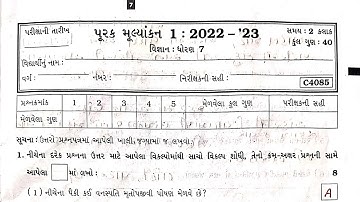 7
પરીક્ષાની તારીખ
પૂરક મૂલ્યાંકન 1 : 2022 - '23
સમય : 2 કલાક
વિજ્ઞાન : ધોરણ 7
કુલ ગુણ : 40
વિદ્યાર્થીનું નામ :
વર્ગ : નંબર : નિરીક્ષકની સહી :
C4085
પ્રશ્નક્રમાંક 1 2 3 4 5 મેળવેલા કુલ ગુણ પરીક્ષકની સહી
મેળવેલા ગુણ
સૂચના : ઉત્તરો પ્રશ્નપત્રમાં આપેલી ખાલી જગ્યામાં જ લખવા.
1. નીચેના દરેક પ્રશ્નના ઉત્તર માટે આપેલા વિકલ્પોમાંથી સાચો વિકલ્પ શોધી, તેનો ક્રમ-અક્ષર પ્રશ્નની સામે
આપેલા માં લખો : 8
(1) નીચેના પૈકી કઈ વનસ્પતિ મૃતોપજીવી પોષણ મેળવે છે? A